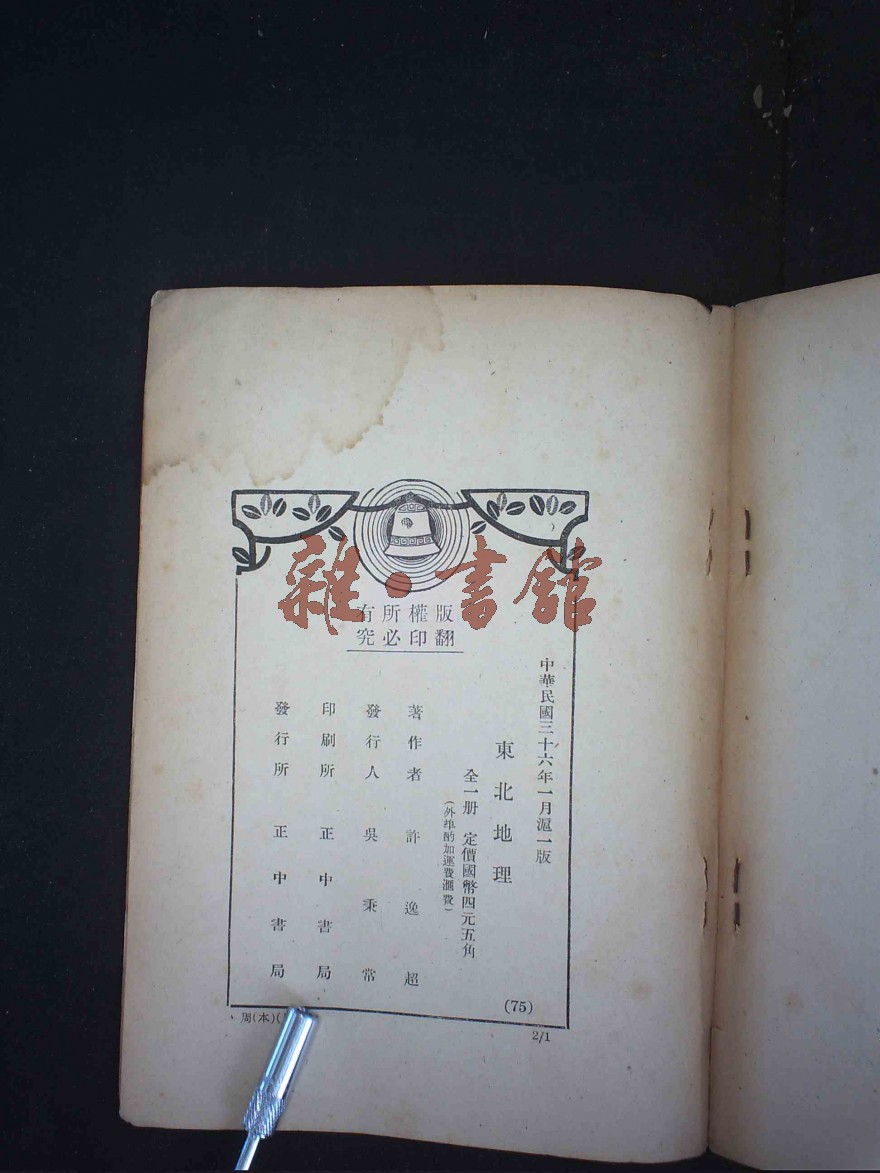 雜·書館
版權所有
翻印必究
中華民國三十六年一月滬一版
東北地理
全一册 定價國幣四元五角
(外埠酌加運費滙費)
著作者 許逸超
發行人 吳秉常
印刷所 正中書局
發行所 正中書局
(75)
周(本)(
2/1